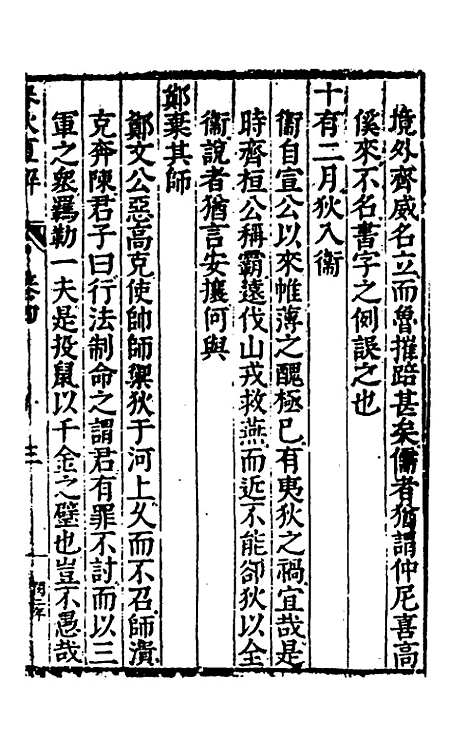 境外齊威名立而魯摧踣甚矣儒者猶謂仲尼喜高
傒來不名書字之例誤之也
十有二月狄入衞
衞自宣公以來帷薄之醜極巳有夷狄之禍宜哉是
時齊桓公稱霸遠伐山戎救燕而近不能卻狄以全
衞說者猶言安攘何與
鄭棄其師
鄭文公惡高克使帥師禦狄于河上久而不召師潰
克奔陳君子曰行法制命之謂君有罪不討而以三
軍之衆羈勒一夫是投鼠以千金之璧也豈不愚哉
春秋直解
三
閔二年